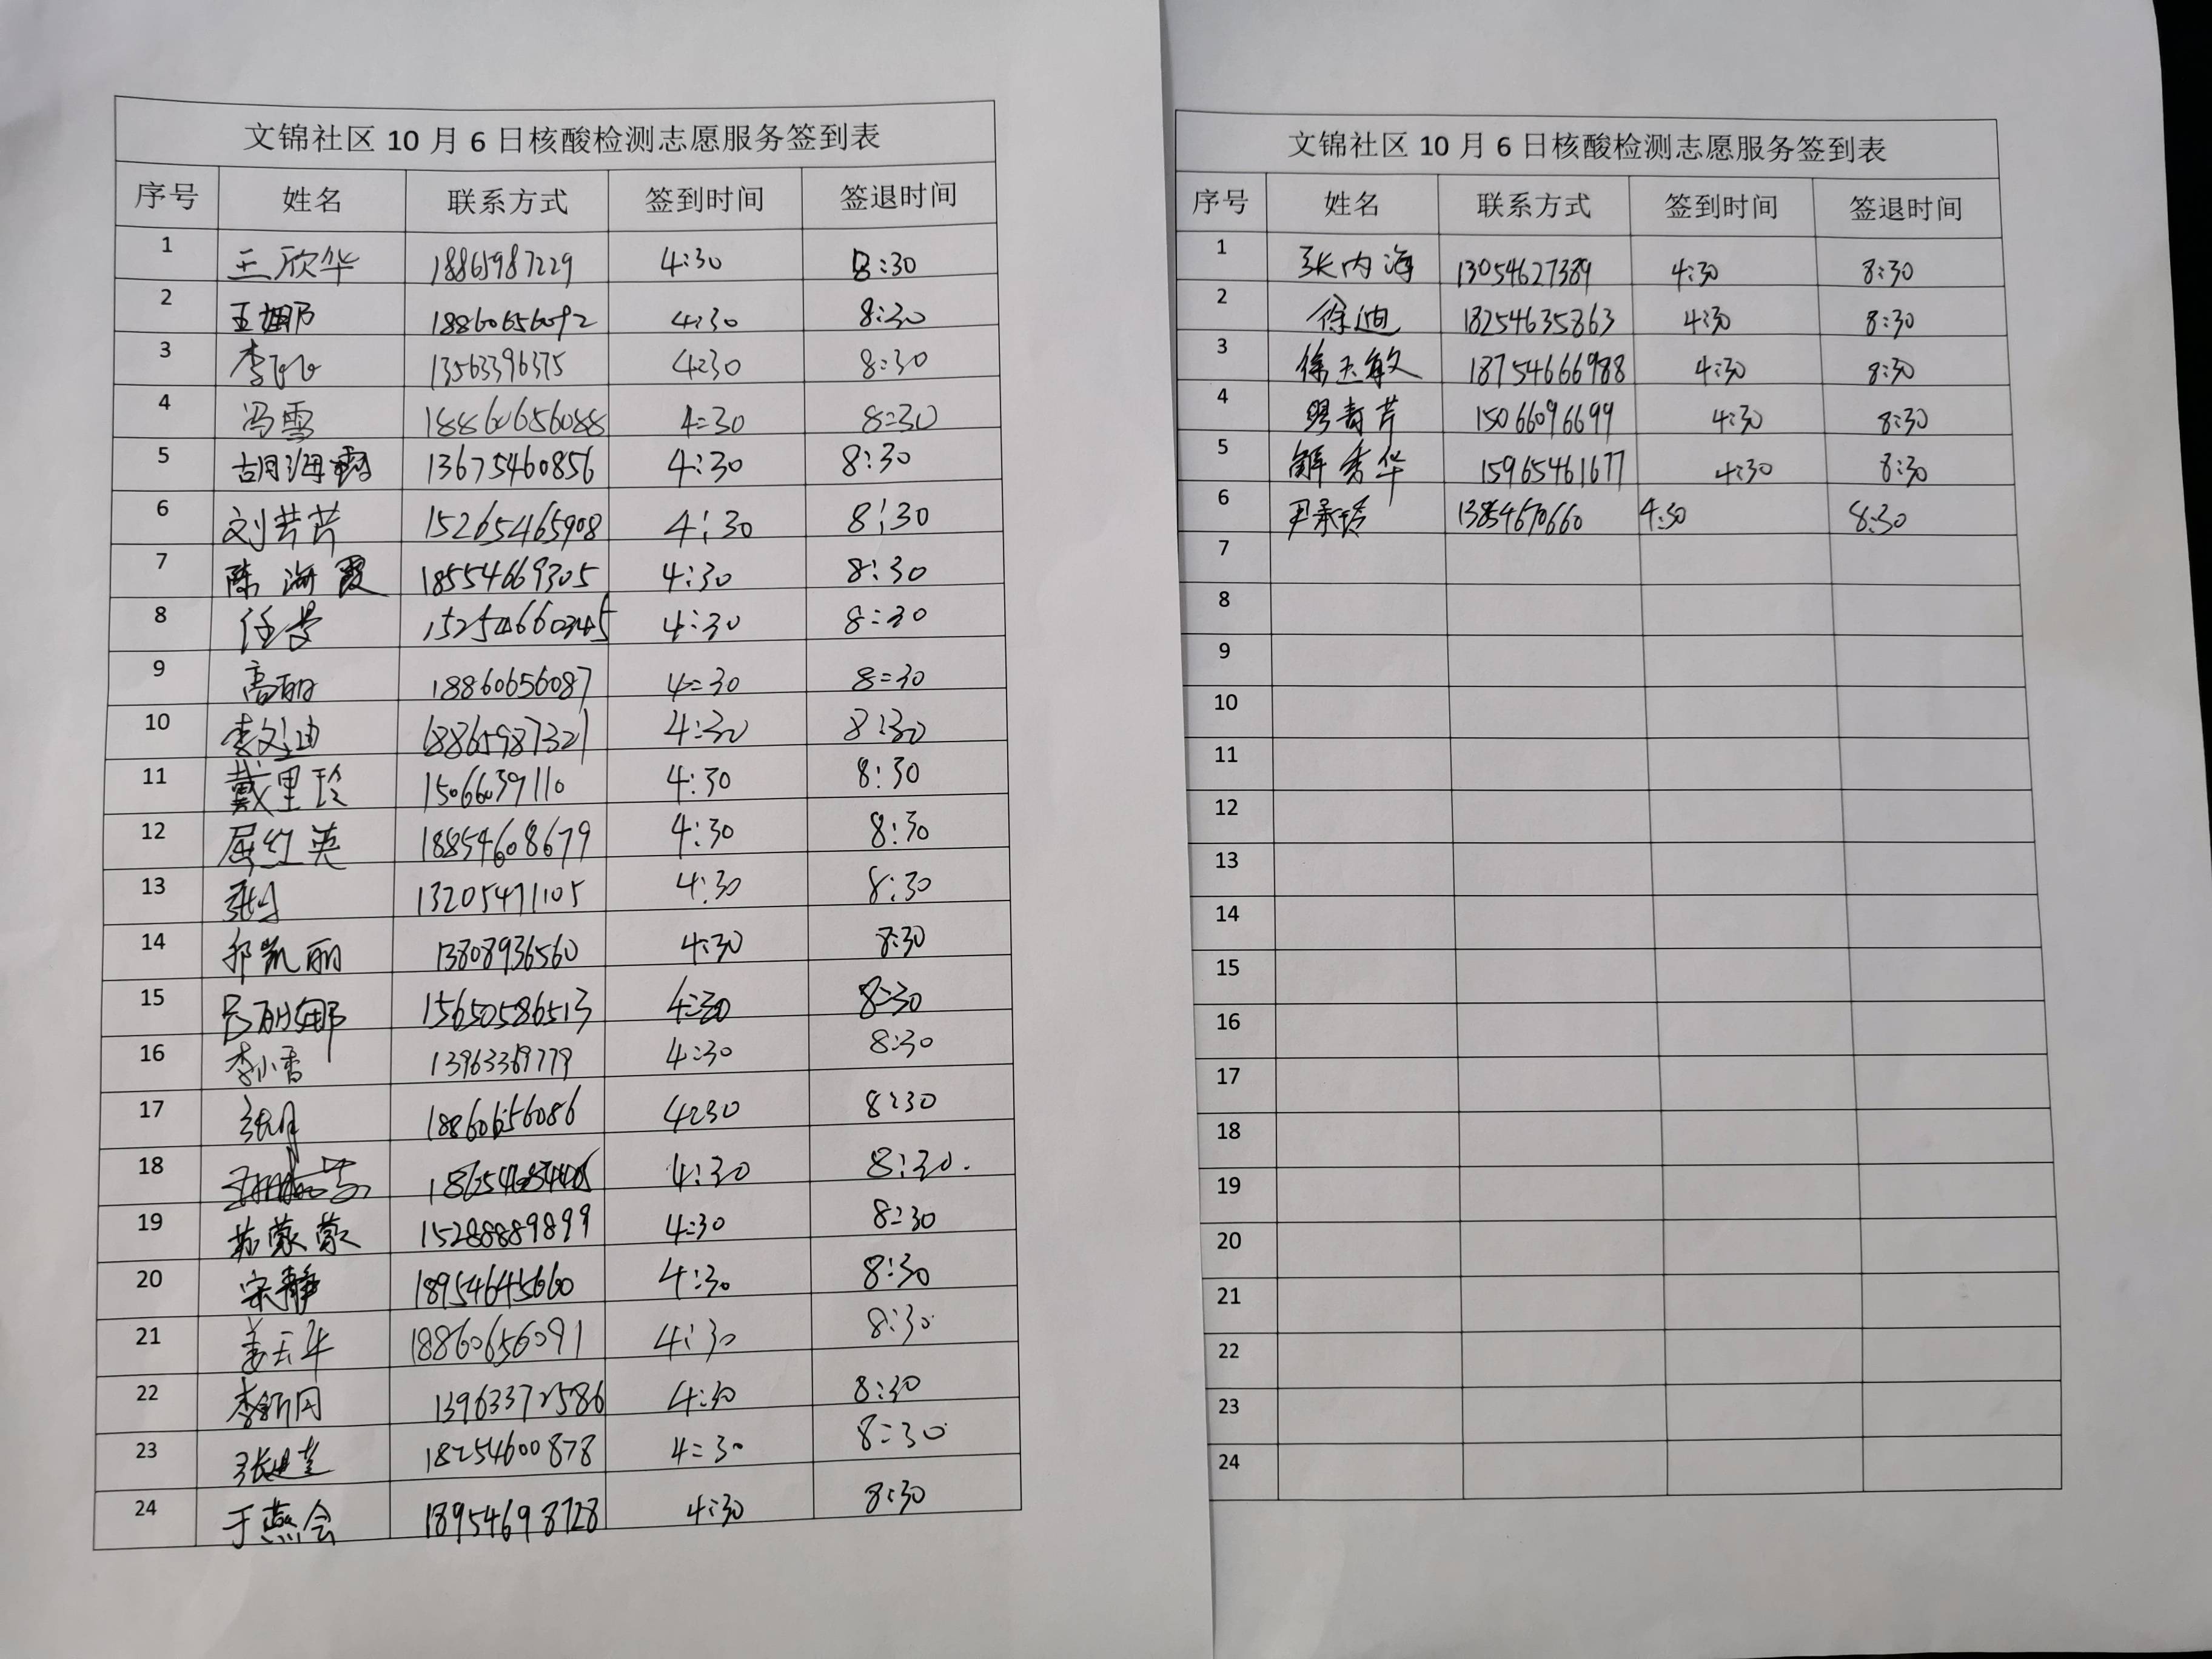 文锦社区 10 月 6 日核酸检测志愿服务签到表
序号 姓名 联系方式 签到时间 签退时间
1 王欣华 18865987229 4:30 8:30
2 王娜 18860656092 4:30 8:30
3 李 13563396375 4:30 8:30
4 冯雪 18860656088 4:30 8:30
5 胡海霞 13675460856 4:30 8:30
6 刘芳芹 15265465908 4:30 8:30
7 陈海霞 18554669305 4:30 8:30
8 任 4:30 8:30
9 高丽 18860656087 4:30 8:30
10 李文迪 18865987321 4:30 8:30
11 戴里玲 15066039110 4:30 8:30
12 屈红英 18854608679 4:30 8:30
13 13205471105 4:30 8:30
14 郭凯丽 13808936560 4:30 8:30
15 吕丽娜 15650586513 4:30 8:30
16 李小青 4:30 8:30
17 张月 18860656086 4:30 8:30
18 4:30 8:30.
19 苏蒙蒙 15288889899 4:30 8:30
20 宋静 18954645660 4:30 8:30
21 姜云华 18860656091 4:30 8:30
22 李新同 13963372586 4:30 8:30
23 张 18254600878 4:30 8:30
24 于燕会 18954698728 4:30 8:30
文锦社区 10 月 6 日核酸检测志愿服务签到表
序号 姓名 联系方式 签到时间 签退时间
1 张内海 13054627389 4:30 8:30
2 徐迪 18254635863 4:30 8:30
3 徐玉敏 18754666988 4:30 8:30
4 青芹 15066096699 4:30 8:30
5 解秀华 15965461677 4:30 8:30
6 尹承玲 13854670660 4:30 8:30
7
8
9
10
11
12
13
14
15
16
17
18
19
20
21
22
23
24